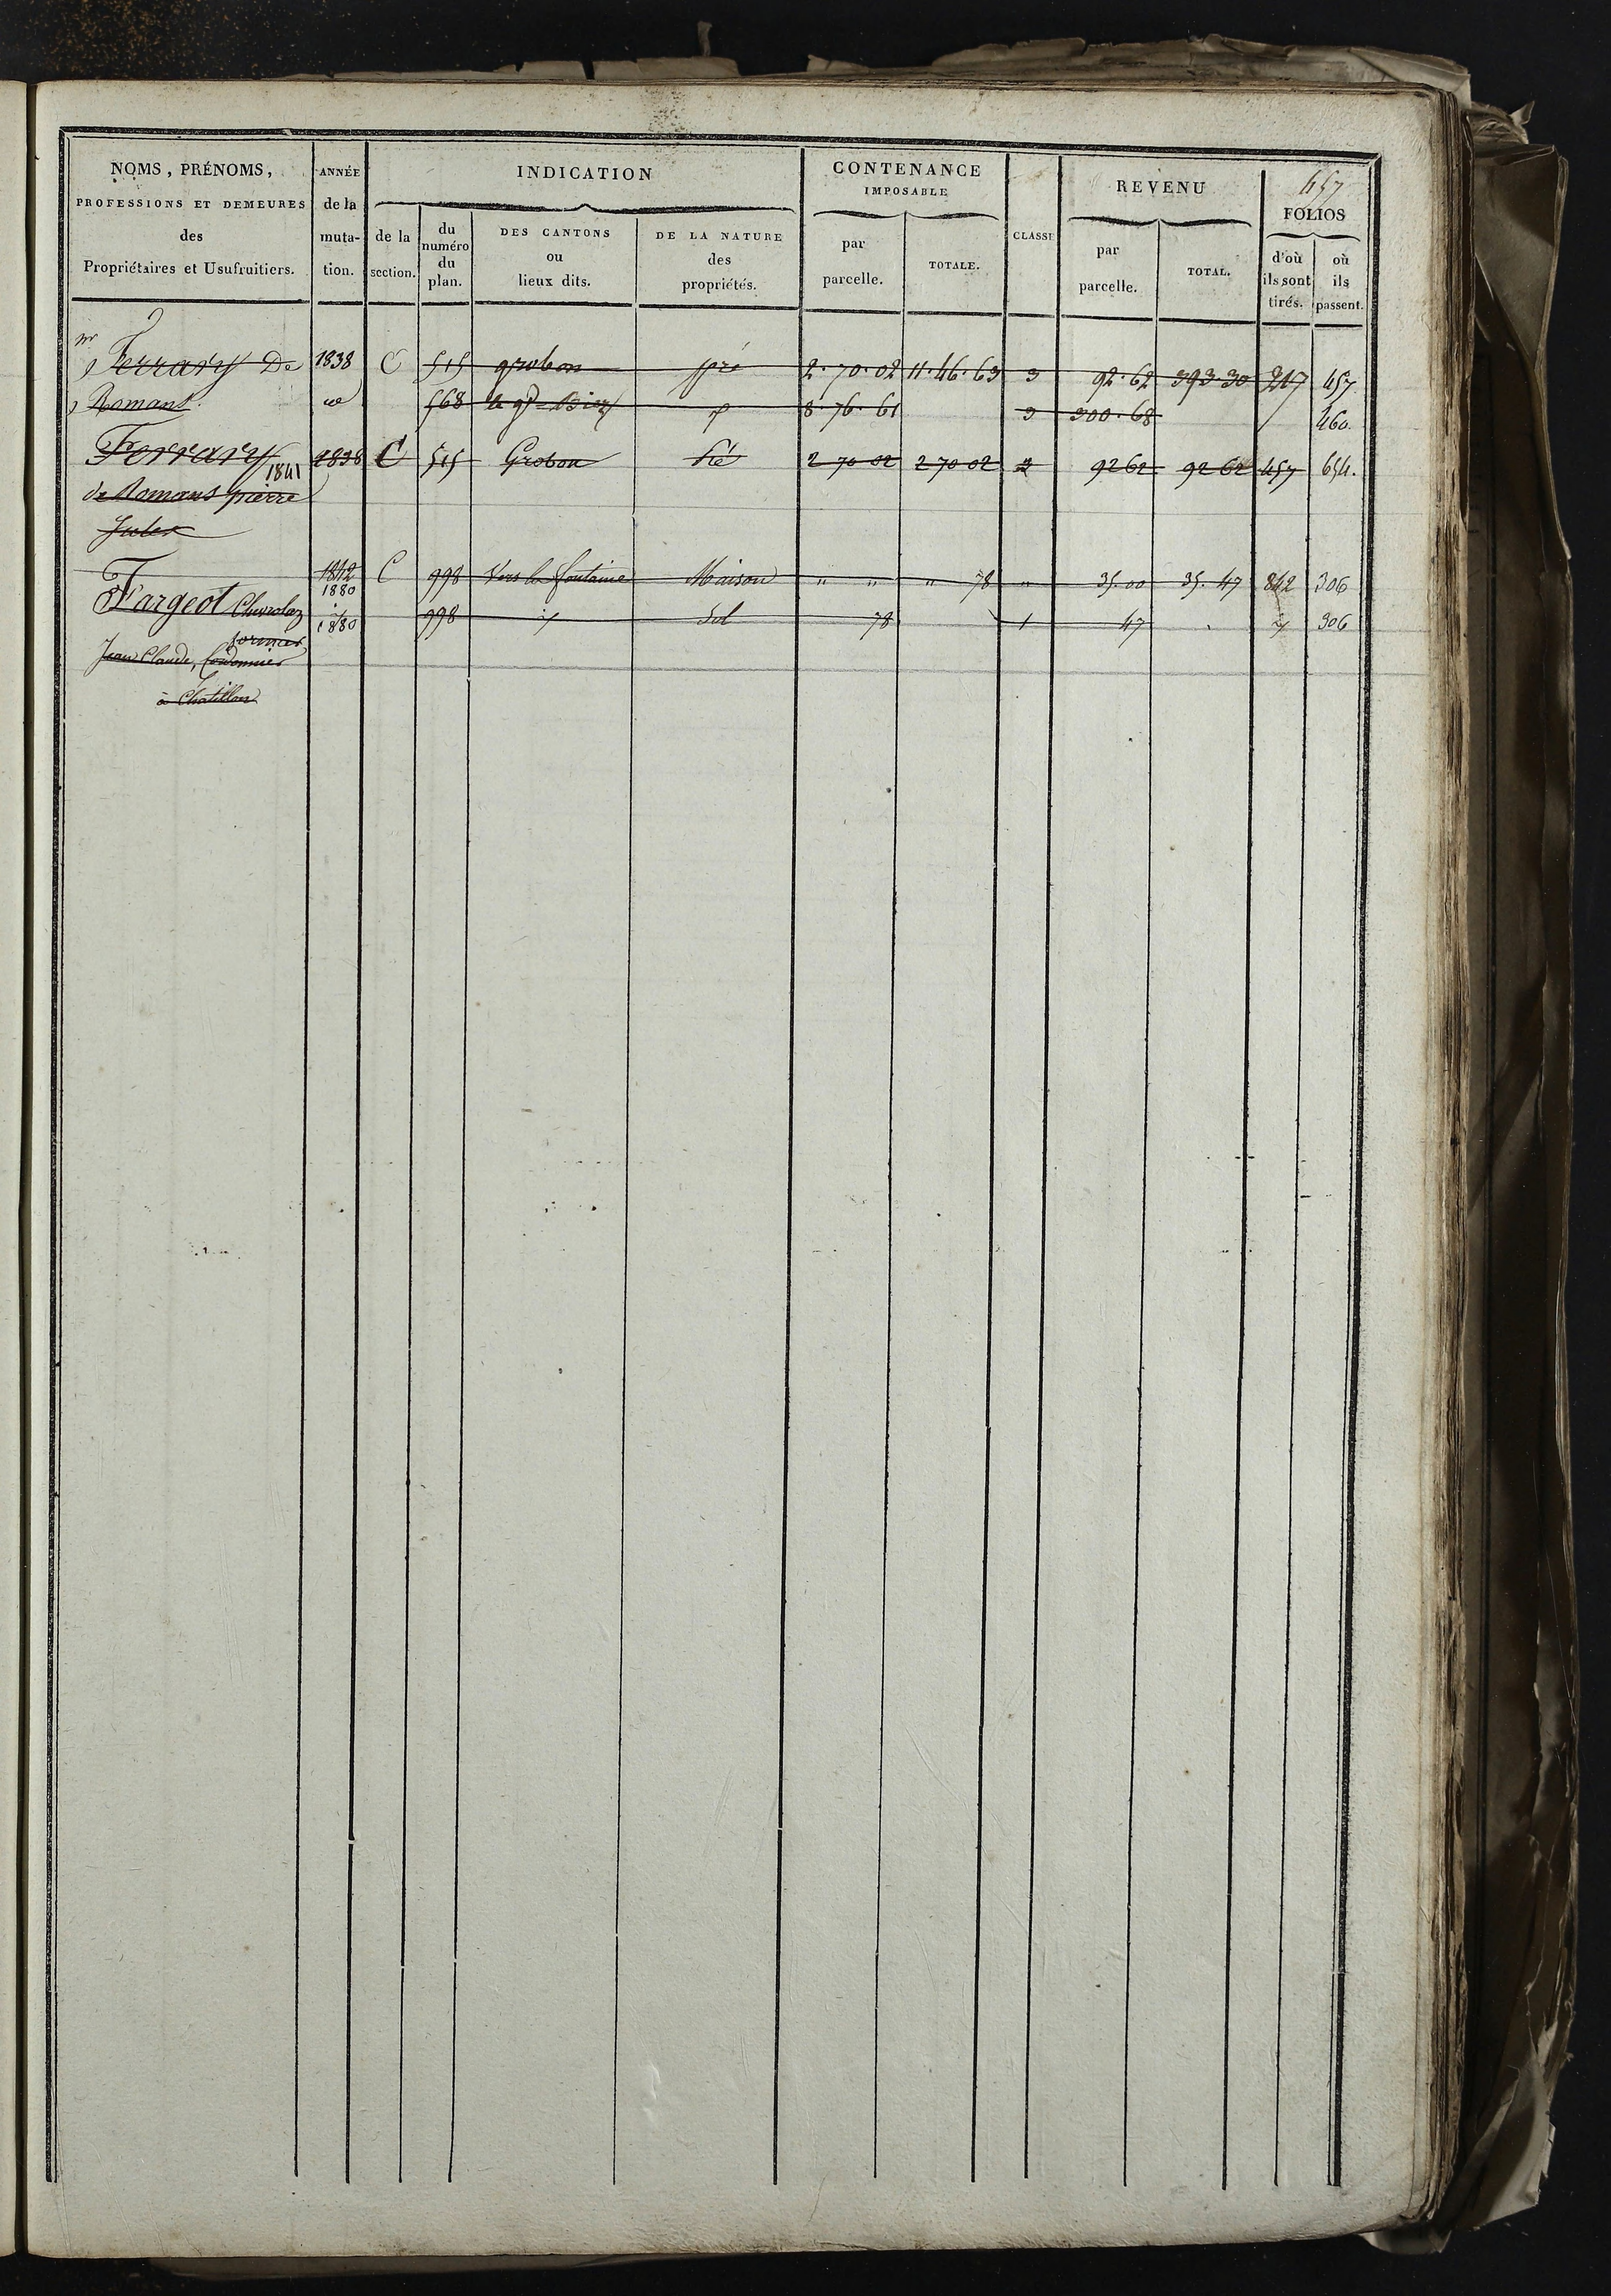 NOMS, PRÉNOMS, ANNÉE INDICATION CONTENANCE REVENU 457
PROFESSIONS ET DEMEURES de la IMPOSABLE FOLIOS
des muta- de la du numéro du plan. DES CANTONS ou lieux dits. DE LA NATURE des propriétés. par parcelle. TOTALE. CLASSE par parcelle. TOTAL. d'où ils sont tirés. où ils passent.
Propriétaires et Usufruitiers. tion. section.
mr Ferrary De 1838 C 515 grobon pré 2.70.02 11.46.63 3 92.62 393.30 217 457
Romant. 568 le gd Biez 8.76.61 3 300.68 460.
Ferrary 1841 1838 C 515 Grobon Pré 2 70 02 2 70 02 92 62 92 62 457 654.
de Romans pierre
Jules
Fargeot Chevrolaz 1842 1880 C 998 Vers la fontaine Maison " " " 78 " 35.00 35.47 842 306
1880 998 Sol 78 1 47 306
Jean Claude, Cordonnier
à Châtillon